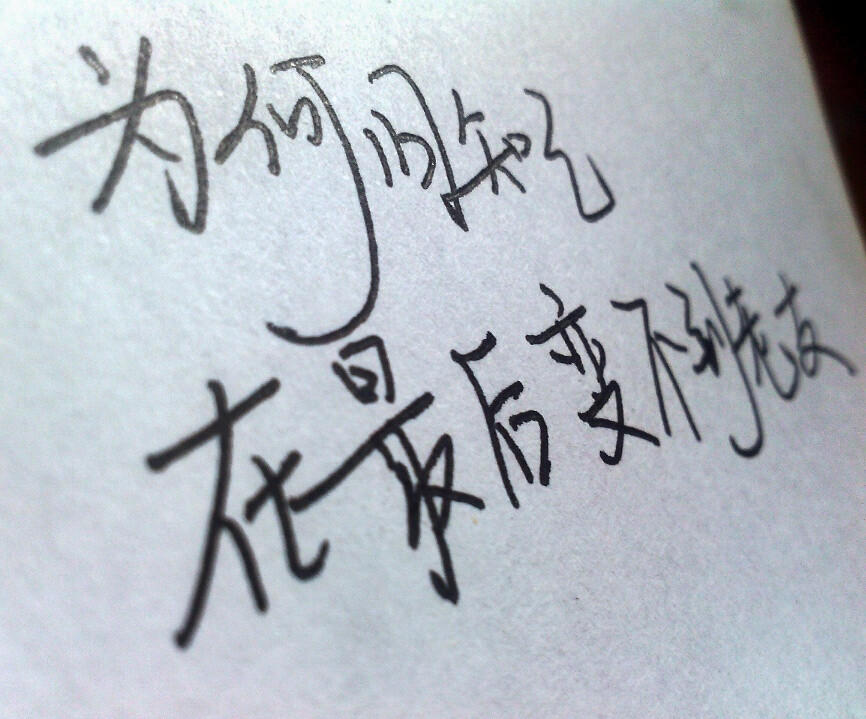 为何旧知己
在最后变不到老友